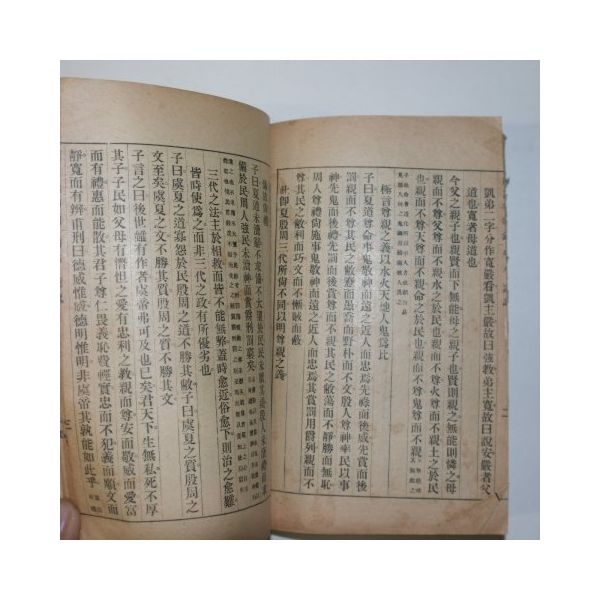 凱弟二字分作寬嚴看凱主嚴故曰強教弟主寬故曰說安嚴者父
道也寬者母道也
今父之親子也親賢而下無能母之親子也賢則親之無能則憐之母
親而不尊父尊而不親水之於民也親而不尊火尊而不親土之於民
也親而不尊天尊而不親命之於民也親而不尊鬼尊而不親
極言尊親之義以水火天地人鬼爲比
子曰夏道尊命事鬼敬神而遠之近人而忠焉先祿而後威先賞而後
罰親而不尊其民之敝惷而愚喬而野朴而不文殷人尊神率民以事
神先鬼而後禮先罰而後賞尊而不親其民之敝蕩而不靜勝而無恥
周人尊禮尙施事鬼敬神而遠之近人而忠焉其賞罰用爵列親而不
尊其民之敝利而巧文而不慚賊而蔽
此卽夏殷周三代所尙不同以明尊親之義
子曰夏道未瀆辭不求備不大望於民民未厭其親殷人未瀆禮而求
備於民周人強民未瀆神而賞爵刑罰窮矣
三代之法主於相救而皆不能無弊蓋時愈近俗愈下則治之愈難
皆時使爲之而非三代之政有所優劣也
子曰虞夏之道寡怨於民殷周之道不勝其敝子曰虞夏之質殷周之
文至矣虞夏之文不勝其質殷周之質不勝其文
子言之曰後世雖有作者虞帝弗可及也已矣君天下生無私死不厚
其子子民如父母有憯怛之愛有忠利之教親而尊安而敬威而愛富
而有禮惠而能散其君子尊仁畏義恥費輕實忠而不犯義而順文而
靜寬而有辨甫刑曰德威惟威德明惟明非虞帝其孰能如此乎